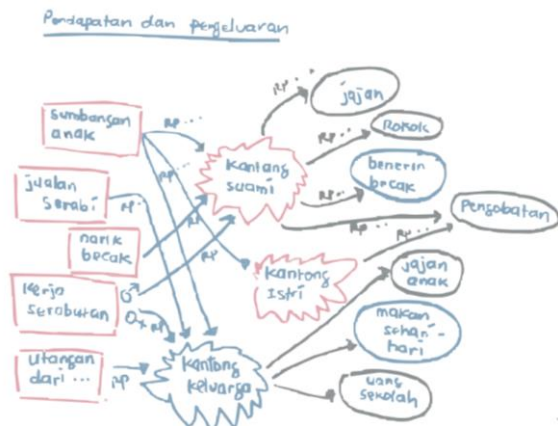 Pendapatan dan pengeluaran
sumbangan
anak
jualan
serabi
narik
becak
kerja
serabutan
utangan
dari ...
RP ...
RP ...
RP ..
RP
RP
♂
♀ RP
RP
kantong
suami
kantong
Istri
kantong
keluarga
RP ...
RP ...
RP ..
RP ...
RP ...
jajan
Rokok
benerin
becak
pengobatan
jajan
anak
makan
sehari-
hari
uang
sekolah